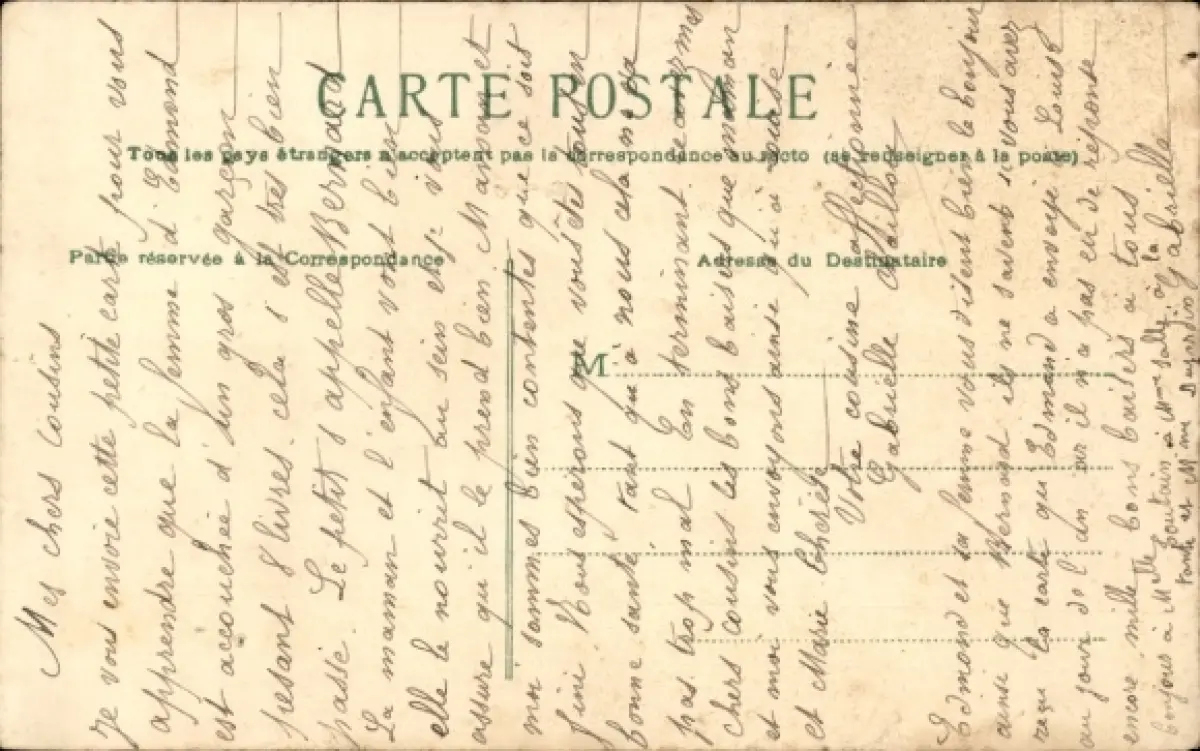 CARTE POSTALE
Tous les pays étrangers n'acceptent pas la correspondance au recto (se renseigner à la poste)
Partie réservée à la Correspondance
Adresse du Destinataire
M
Mes chers Cousins
Je vous envoie cette petite carte pour vous
apprendre que la femme d'Edmond
est accouchée d'un gros garçon
pesant 8 livres. cela s'est très bien
passé. Le petit s'appelle Bernard
La maman et l'enfant vont bien
elle le nourrit au sein et je vous
assure qu'il le prend bien Maman et
moi sommes bien contentes que ce soit
fini Nous espérons que vous êtes tous en
bonne santé tant qu'à nous cela ne va
pas trop mal En terminant recevez mes
chers cousins les bons baisers que maman
et moi vous envoyons ainsi qu'à
et Marie Thérèse
Votre cousine affectionnée
Gabrielle
Edmond et sa femme vous disent bien le bonjour
ainsi que Bernard ils ne savent si vous avez
reçu la carte qu' Edmond a envoyé à Louise
au jour de l'an car il n'a pas eu de réponse
encore mille bons baisers à tous
bonjour à Melle à Mme la
tante et Mme Gabrielle